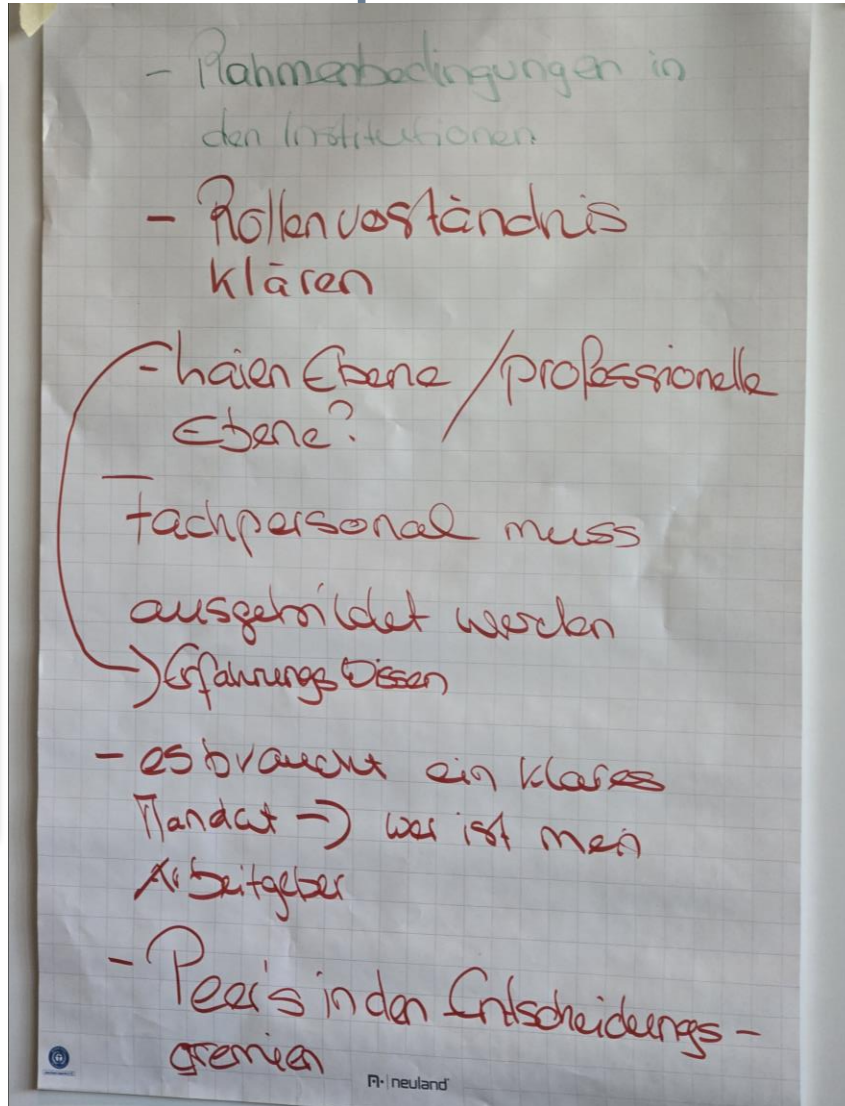 - Rahmenbedingungen in
den Institutionen
- Rollenverständnis
klären
- Laien Ebene / professionelle
Ebene?
- Fachpersonal muss
ausgebildet werden
→ Erfahrungswissen
- es braucht ein klares
Mandat → wer ist mein
Arbeitgeber
- Peer's in den Entscheidungs-
gremien
neuland